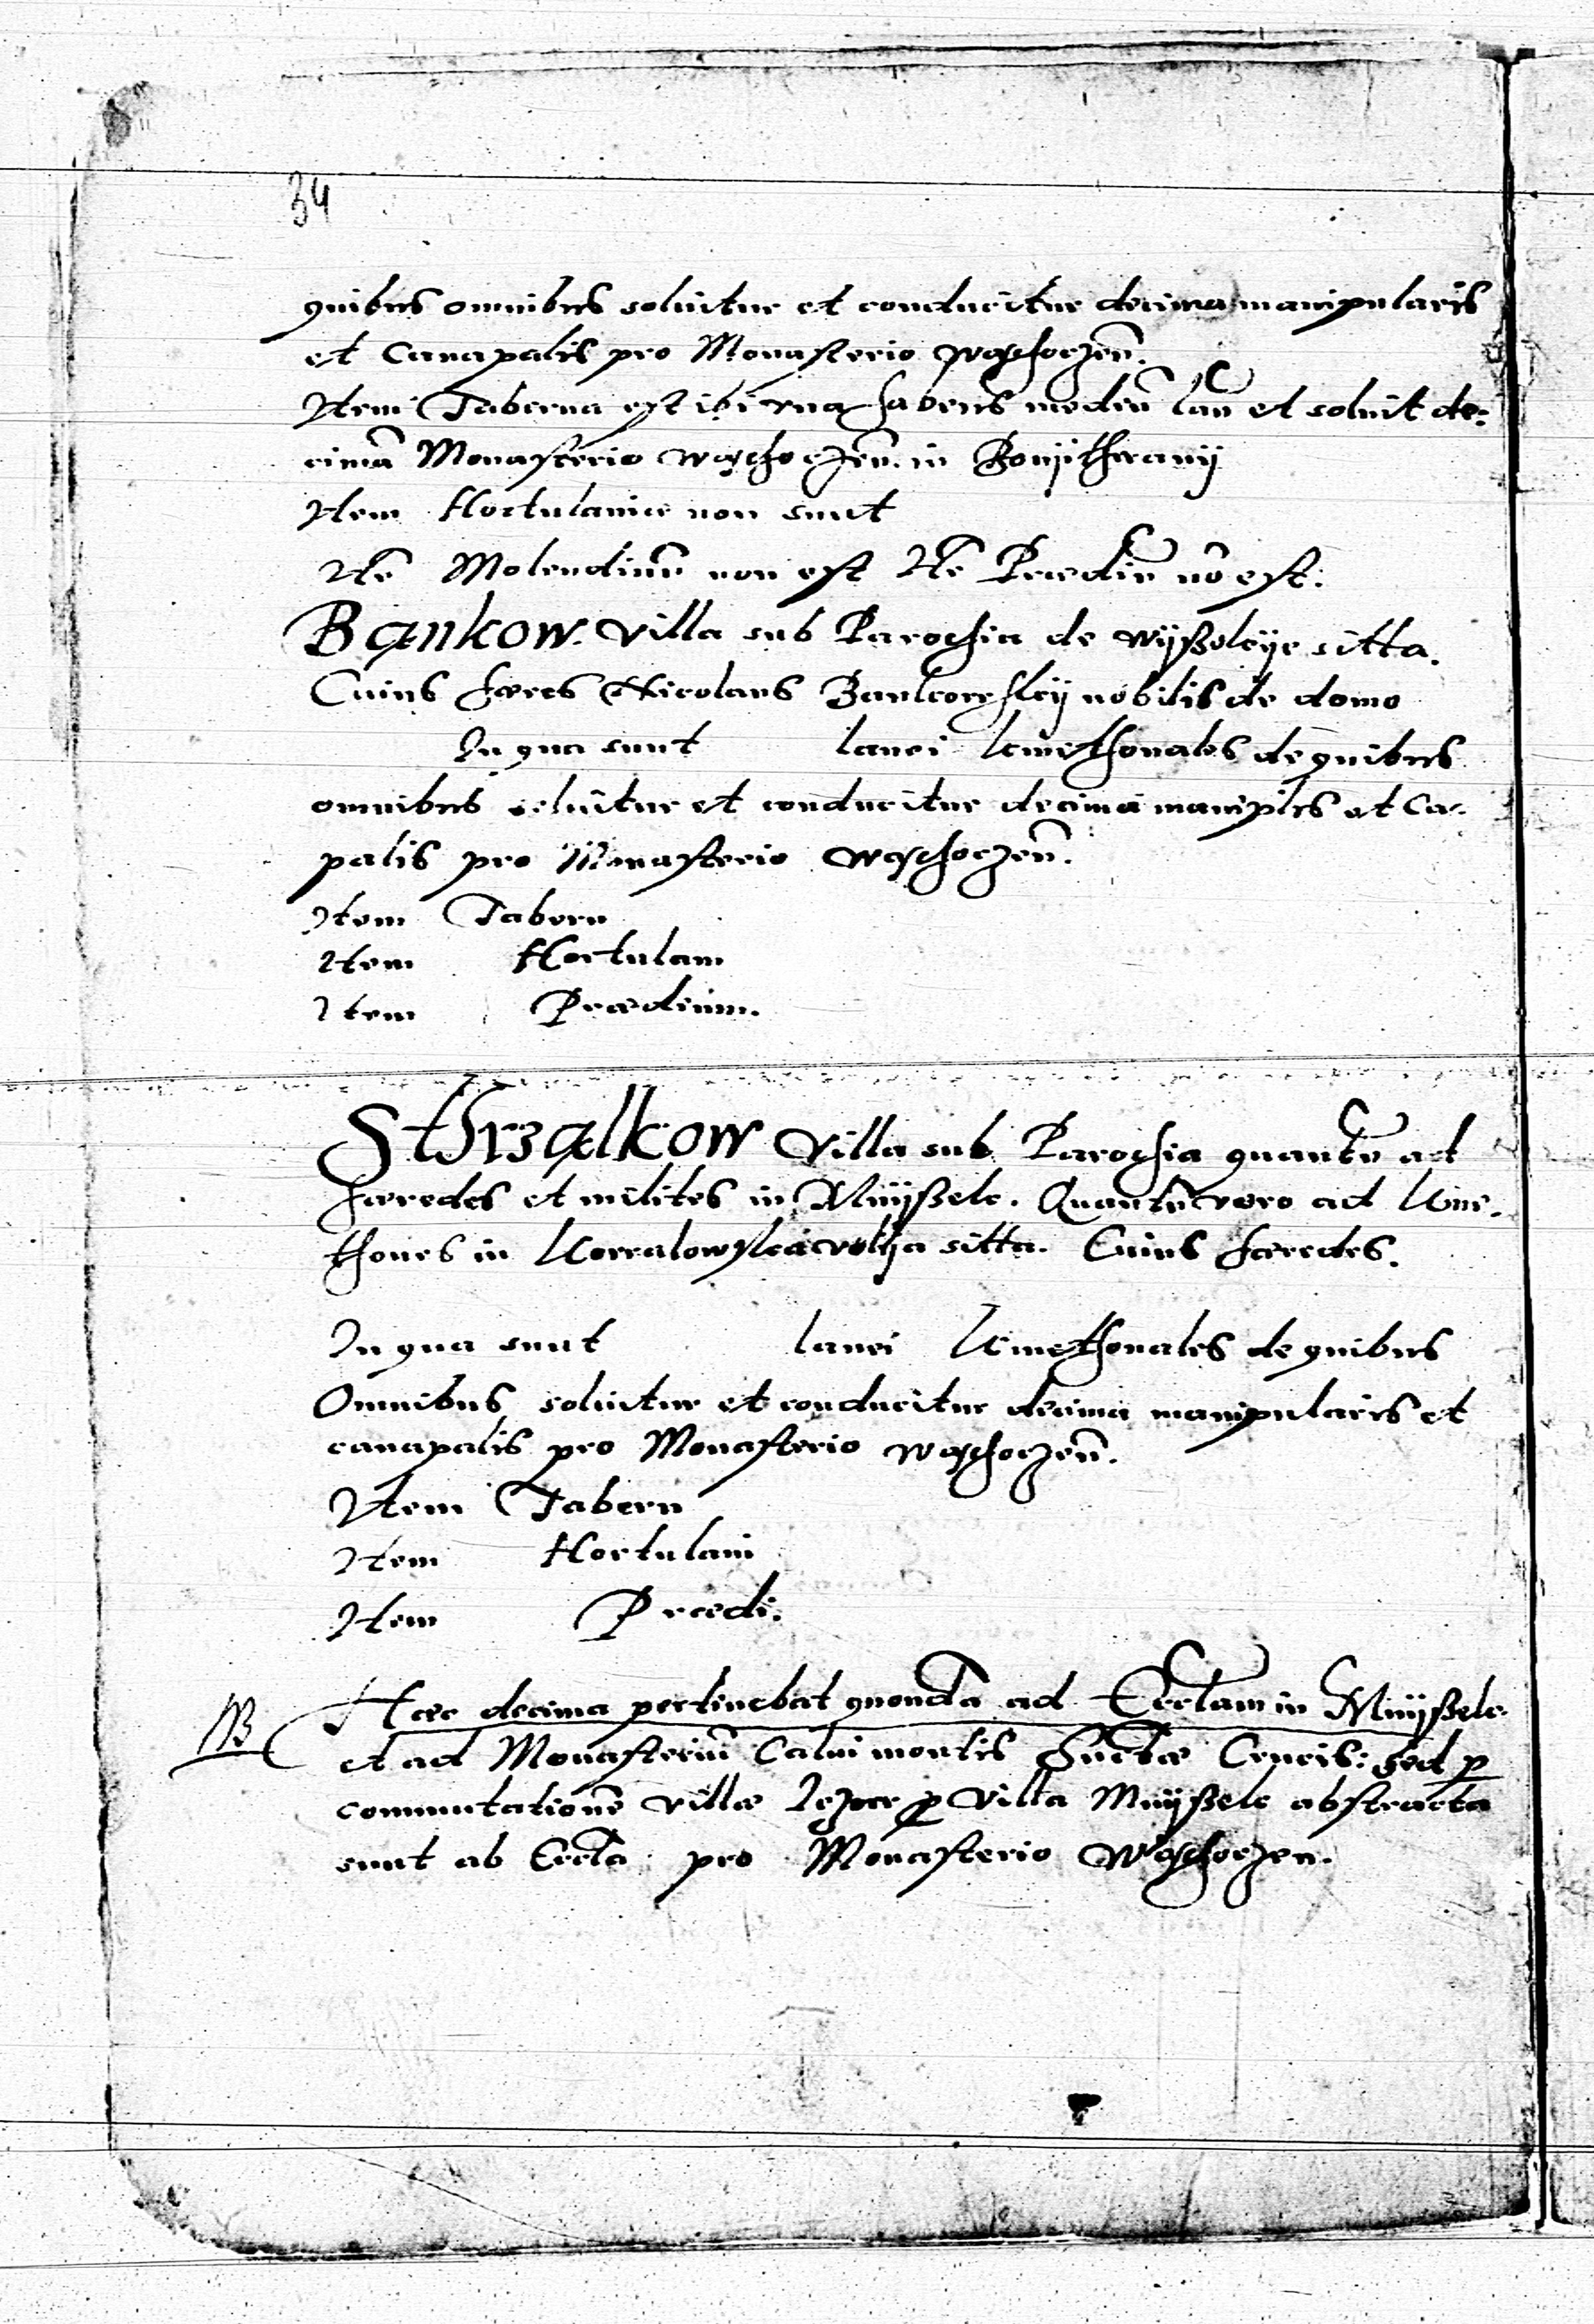 34
quibus omnibus soluitur et conducitur decima manipularis
et Canapalis pro Monasterio wąchoczeñ.
Item Taberna est ibi vna habens mediũ lañ et soluit de-
cimã Monasterio wąchoczeñ. in
Item Hortulaniae non sunt
Itẽ Molendinũ non est Itẽ Praediũ nõ est.
Bąnkow. Villa sub Parochia de wÿßokÿe sitta.
Cuius haeres Nicolaus Bankowskÿ nobilis de domo
In qua sunt lanei kmethonales de quibus
omnibus soluitur et conducitur decima maniplrs et Ca-
palis pro Monasterio wąchoczeñ.
Item Tabern
Item Hortulani
Item Praedium.
Sthrząlkow Villa sub Parochia quantũ ad
haeredes et milites in Mnÿßek. Quantũ vero ad kme-
thones in wolÿa sitta. Cuius haeredes.
In qua sunt lanei kmethonales de quibus
Omnibus soluitur et conducitur decima manipularis et
canapalis pro Monasterio wąchoczeñ.
Item Tabern
Item Hortulani
Item Praedi.
NB Haec decima pertinebat quondã ad Eccľam in Mnÿßek
et ad Monasteriũ Calui montis Sanctae Crucis: sed p
commutationẽ villae p villa Mnÿßek abstracta
sunt ab Eccľa pro Monasterio Wąchoczen.